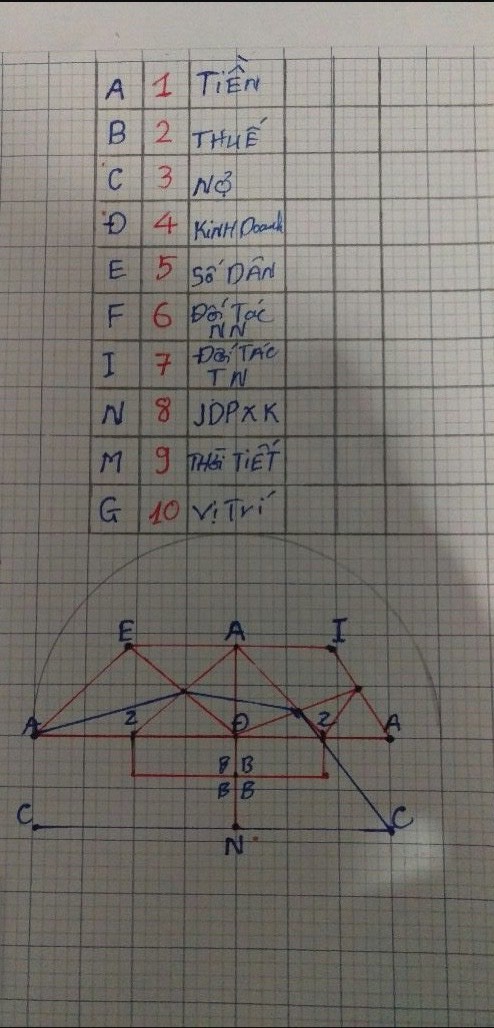 A 1 TIỀN
B 2 THUẾ
C 3 NỢ
Đ 4 KINH Doanh
E 5 Số DÂN
F 6 Đối Tác
NN
I 7 Đối TÁC
TN
N 8 JDPXK
M 9 THỜI TIẾT
G 10 Vị Trí
E A I
A 2 Đ 2 A
B B
B B
C C
N